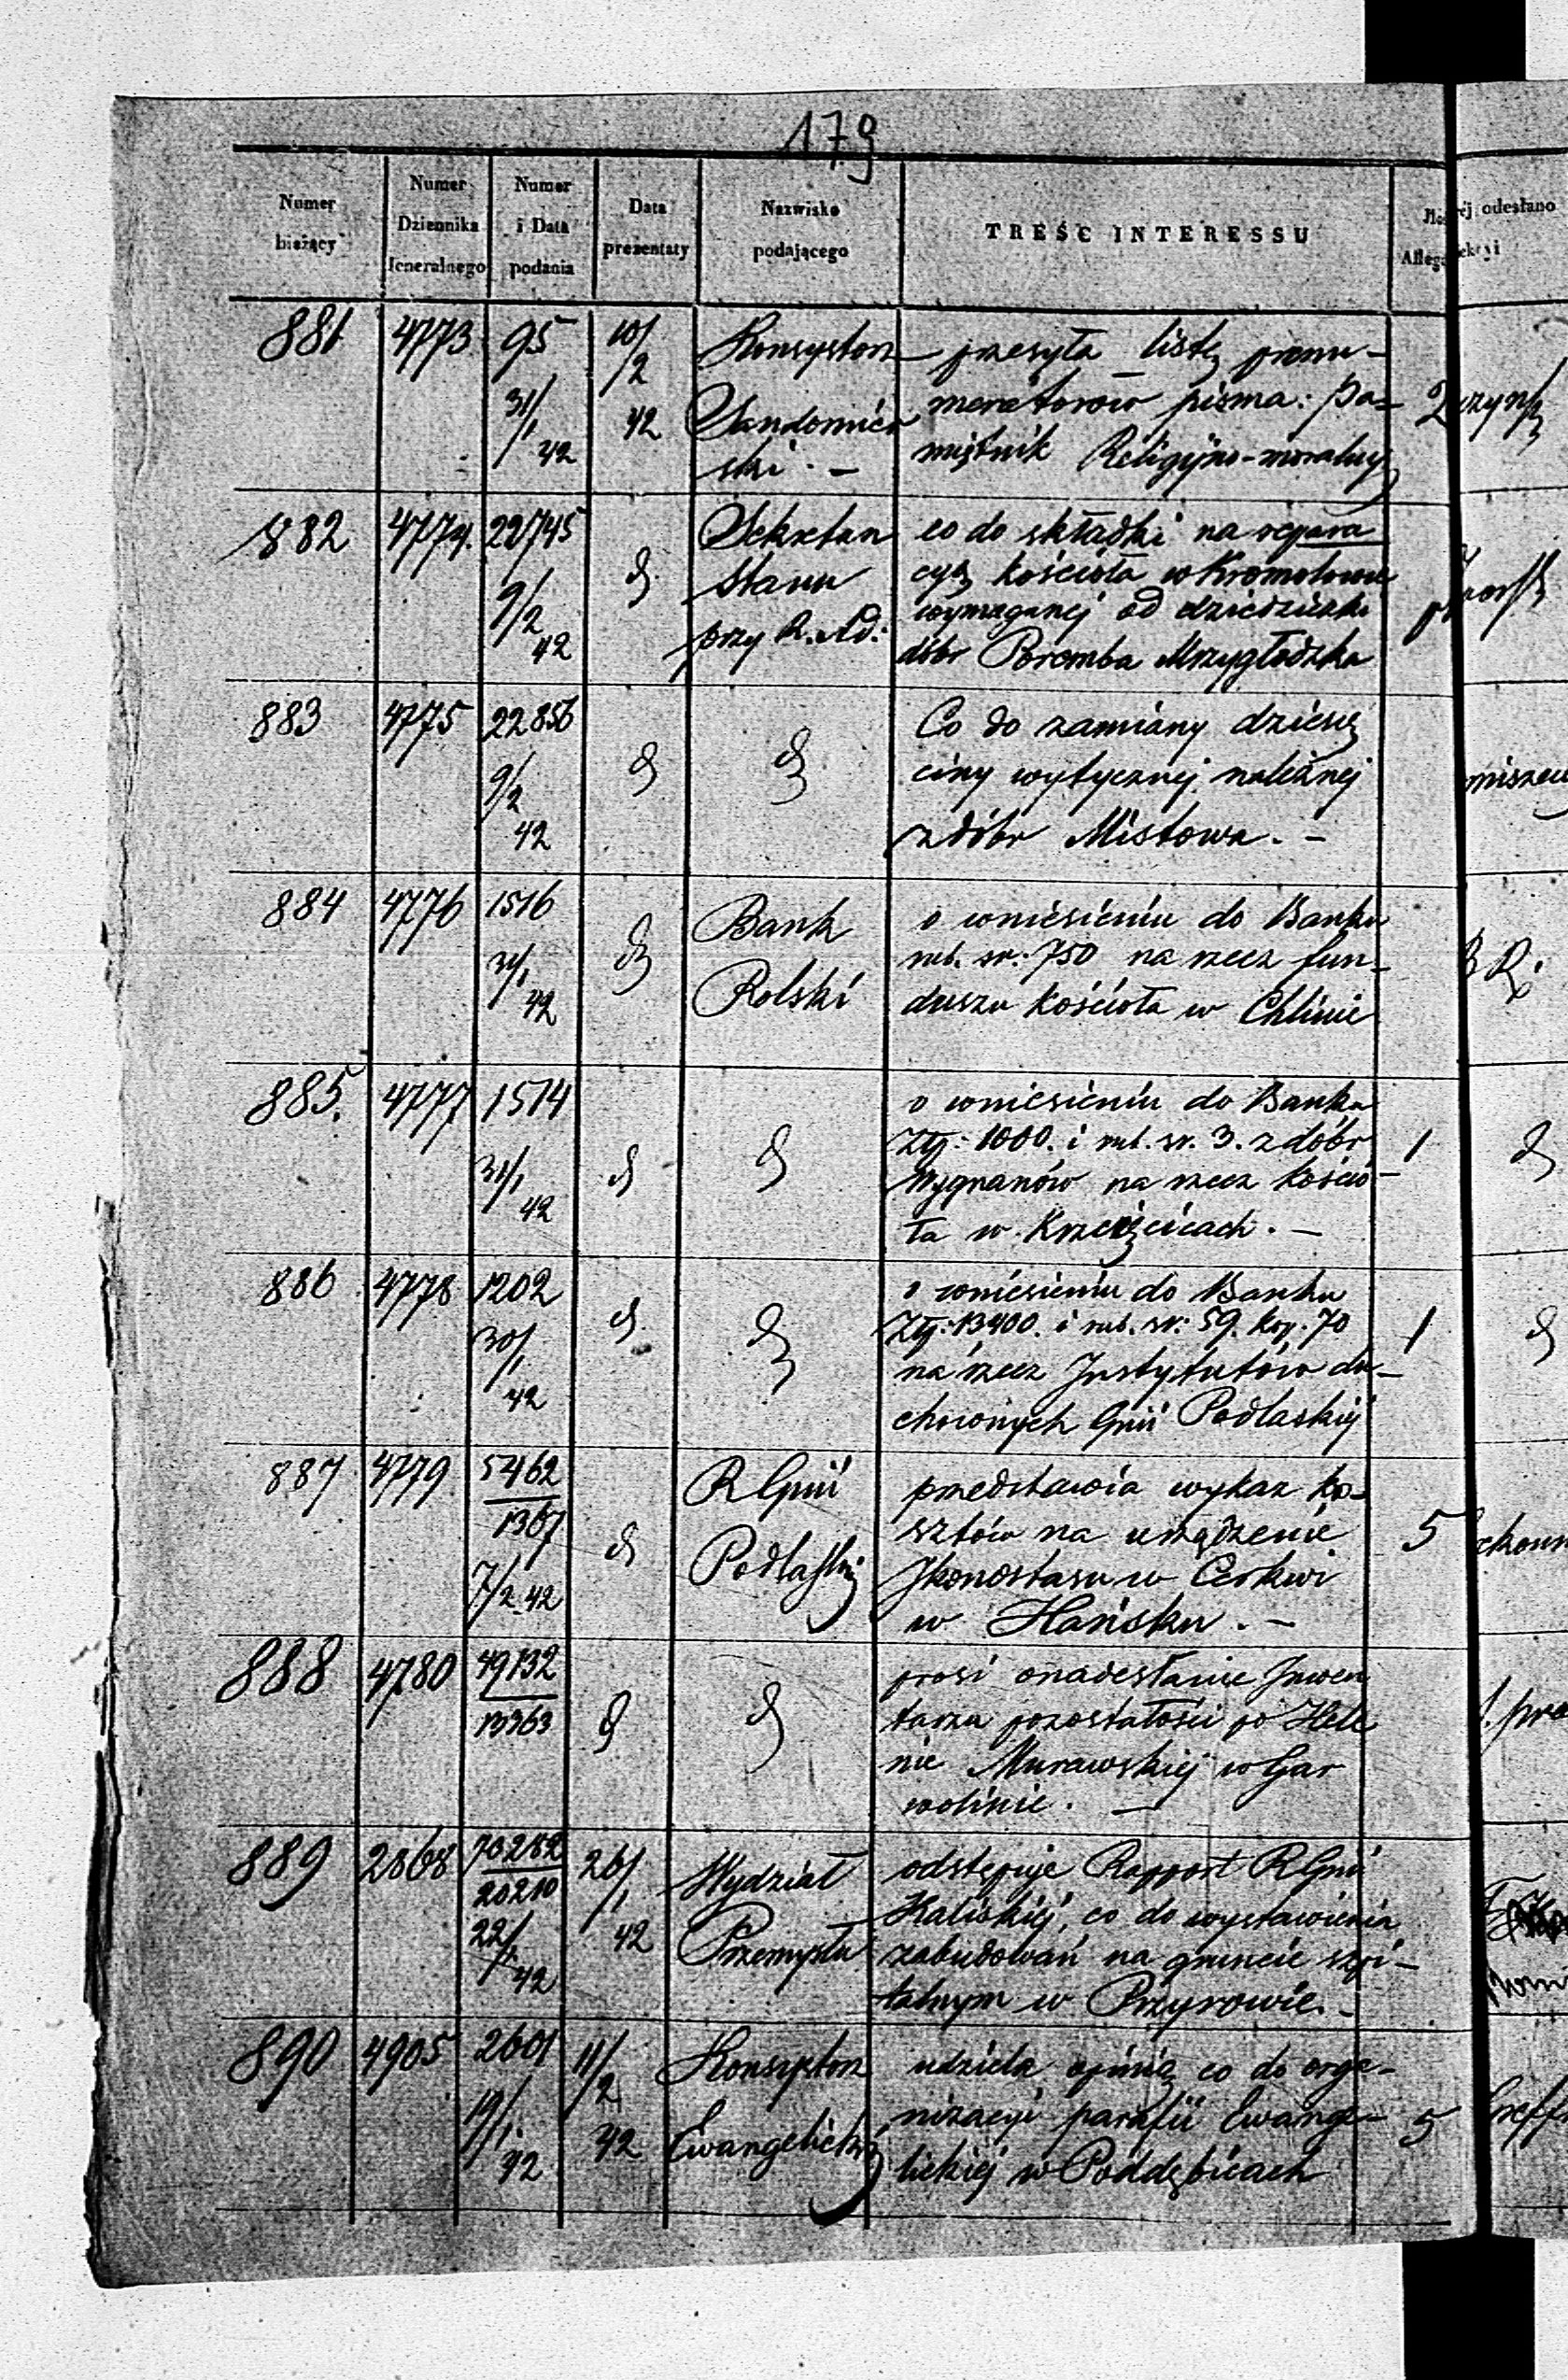 179
Numer bieżący
Numer Dziennika Jeneralnego
Numer i Data podania
Data prezentaty
Nazwisko podającego
TREŚĆ INTERESSU
881 4773 95 31/1 42 10/2 42
Konsystorz
Sandomier
ski. —
przesyła listę prenu-
meratorów pisma: Pa-
miętnik Religijno-moralny
882 4774. 22745 9/2 42 d
Sekretarz
Stanu
przy R. Ad:
co do składki na repara
cyę kościoła w Kromołowie
wymaganej od dziedziczki
dóbr Poremba Mrzygłodzka
883 4775 22856 9/2 42 d d
Co do zamiany dziesię
ciny wytycznej należnej
z dóbr Mistowa. —
884 4776 1516 31/1 42 d
Bank
Polski
o wniesieniu do Banku
rub. sr: 750 na rzecz fun-
duszu kościoła w Chlinie
885. 4777 1514 31/1 42 d d
o wniesieniu do Banku
Złp: 1000. i rub. sr. 3. z dóbr
Wygnanów na rzecz kościo-
ła w
1 d
886 4778 1202 30/1 42 d d
o wniesieniu do Banku
Złp: 13400. i rub. sr: 59. kop. 70
na rzecz Instytutów du-
chownych Gnii Podlaskiej
1 d
887 4779 5462/1367 7/2 42 d
R Gnii
Podlaskiej
przedstawia wykaz ko-
sztów na urządzenie
Ikonostasu w Cerkwi
w Hańsku. —
5
888 4780 49132/13963 d d
prosi o nadesłanie Inwen
tarza pozostałości po Hele
nie Murawskiej w Gar
wolinie. —
889 2868 70282/20210 22/1 42 26/1 42
Wydział
Przemysłu
odstępuje Rapport R Gnii
Kaliskiej, co do wystawienia
zabudowań na gruncie szpi-
talnym w Przyrowie. -
890 4905 2601 19/1 42 11/2 42
Konsystorz
Ewangelicki
udziela opinię co do orga-
nizacyi parafii Ewange-
lickiej w Poddębicach
5